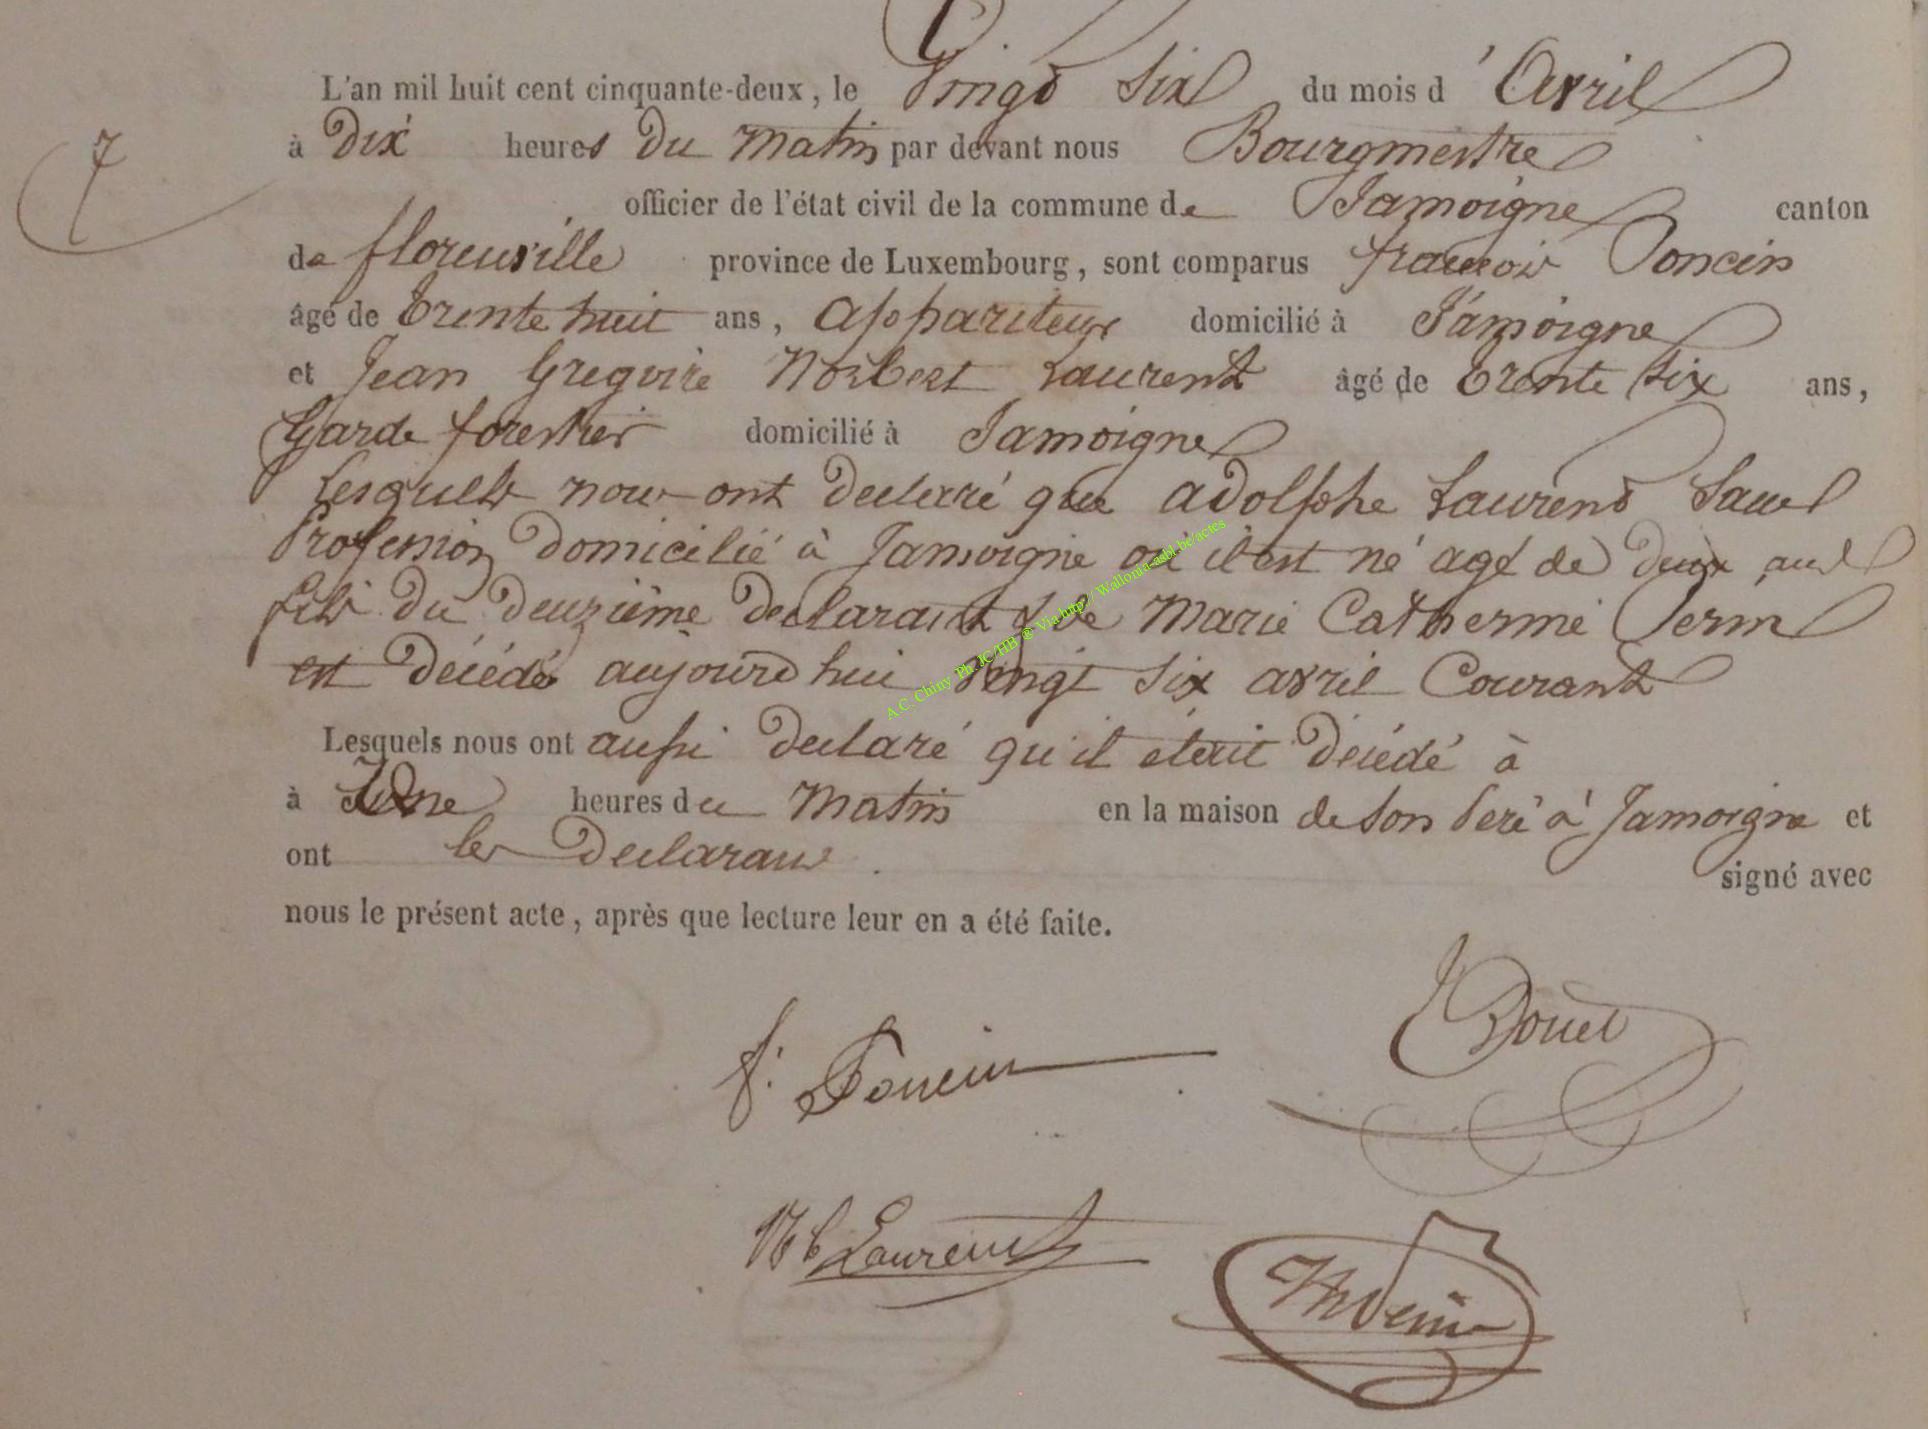 L'an mil huit cent cinquante-deux, le Vingt Six du mois d'Avril
7
à Dix heures Du Matin par devant nous Bourgmestre
officier de l'état civil de la commune de Jamoigne canton
de florenville province de Luxembourg, sont comparus françois Poncin
âgé de Trente huit ans, Appariteur domicilié à Jamoigne
et Jean Gregoire Norbert Laurent âgé de Trente Six ans,
Garde forestier domicilié à Jamoigne
Lesquels nous ont declaré que adolphe Laurent Sans
Profession domicilié à Jamoigne où il est né agé de deux ans
fils du deuzième declarant & de Marie Catherine
est décédé aujourd'hui vingt six avril Courant
A.C. Chiny Ph. JC/HB ® Via http://Wallonia-asbl.be/actes
Lesquels nous ont aussi declaré qu'il était décédé à
à Une heures du Matin en la maison de son Peré à Jamoigne et
ont les Declarans signé avec
nous le présent acte, après que lecture leur en a été faite.
f. Poncin
Nb Laurent